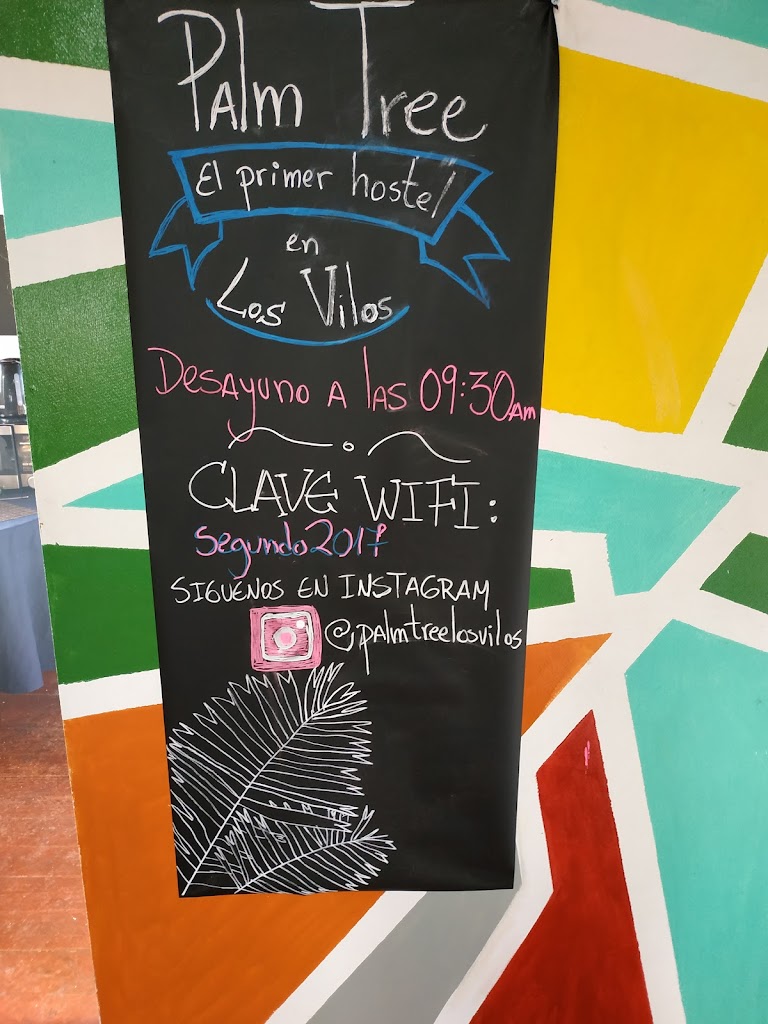 Palm Tree
El primer hostel
en
Los Vilos
DESAYUNO A LAS 09:30AM
CLAVE WIFI:
segundo2017
SIGUENOS EN INSTAGRAM
@palmtreelosvilos